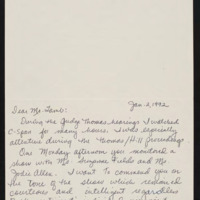 Jan. 2, 1992
Dear Mr. Lamb:
During the Judge Thomas hearings I watched
C-Span for many hours. I was especially
attentive during the Thomas/Hill proceedings.
One Monday afternoon you monitored a
show with Ms. Suzanne Fields and Ms
Jodie Allen. I want to commend you on
the tone of the show which remained
courteous and intelligent regardless